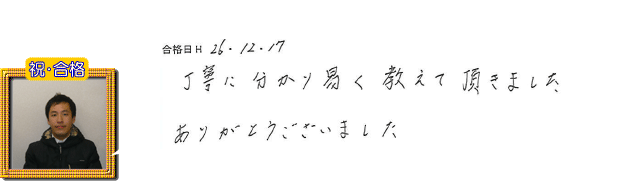 祝・合格
合格日H 26.12.17
丁寧に分かり易く教えて頂きました
ありがとうございました